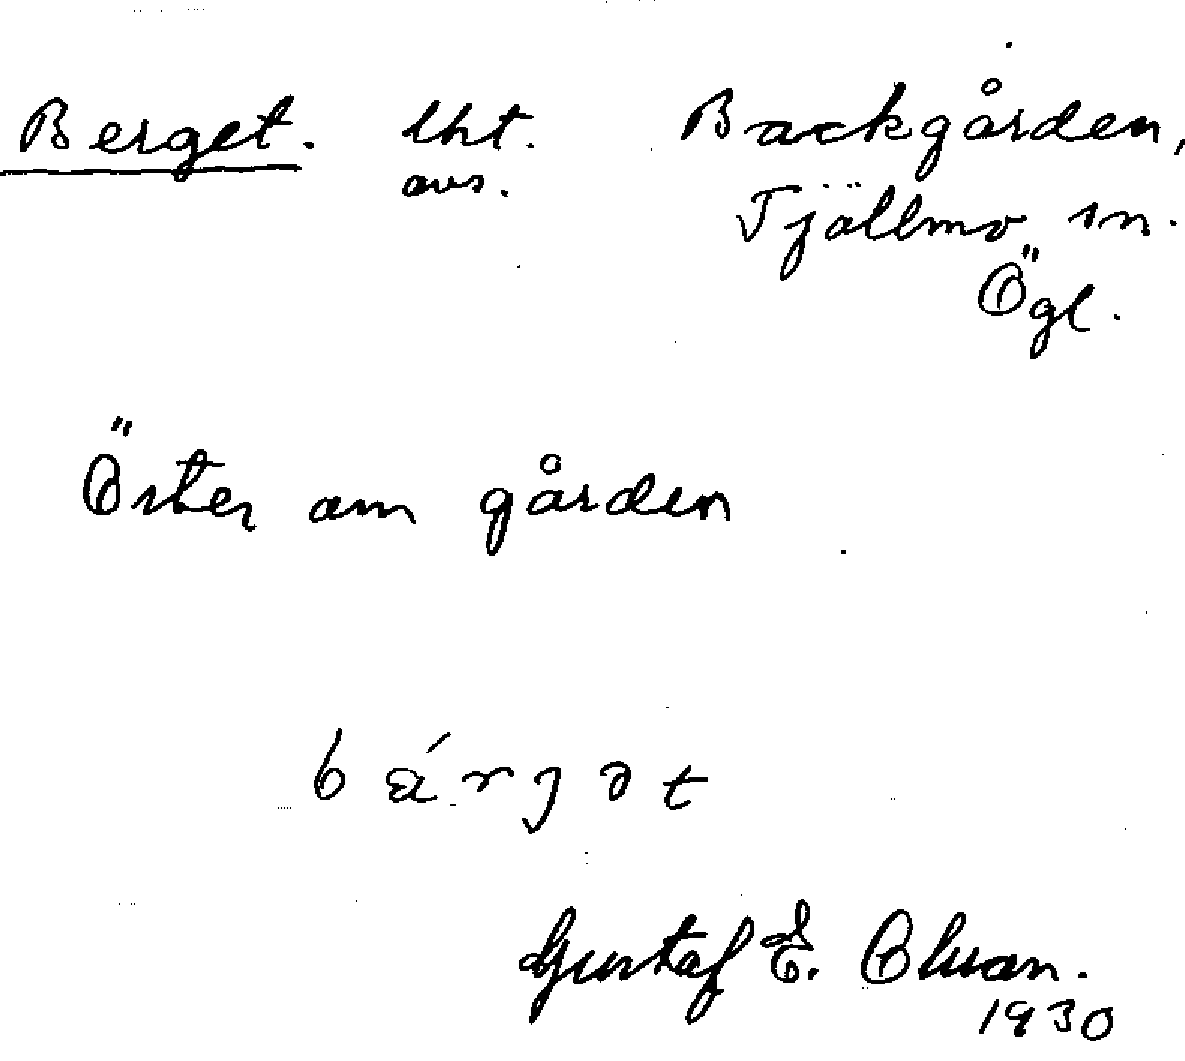 Berget. lht. Backgården,
avs. Tjällmo sn.
Ögl.
Öster om gården
bä́rjət
Gustaf E. Olsson.
1930